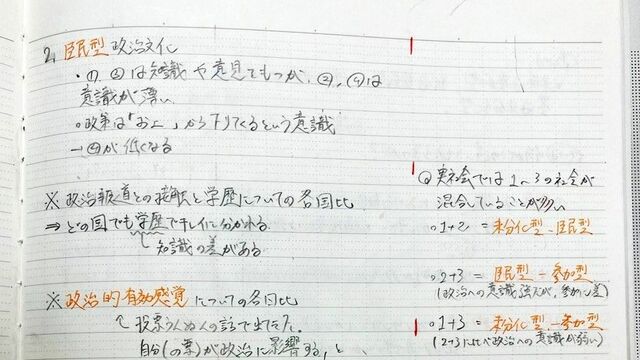 2, 臣民型 政治文化
・①, ③は知識や意見をもつが, ②, ④は
意識が薄い
○政策は「お上」から下りてくるという意識
→④が低くなる
※政治報道との接触と学歴についての各国比
⇒どの国でも学歴でキレイに分かれる
知識の差がある
※政治的有効感覚についての各国比
投票うんぬんの話で出てきた。
自分(の票)が政治に影響する, と
実社会では1〜3の社会が
混合していることが多い
○1+2 = 未分化型-臣民型
○2+3 = 臣民型-参加型
(政治への意識強だが, 参加に差)
○1+3 = 未分化型-参加型
(2+3に比べ政治への意識が弱い)